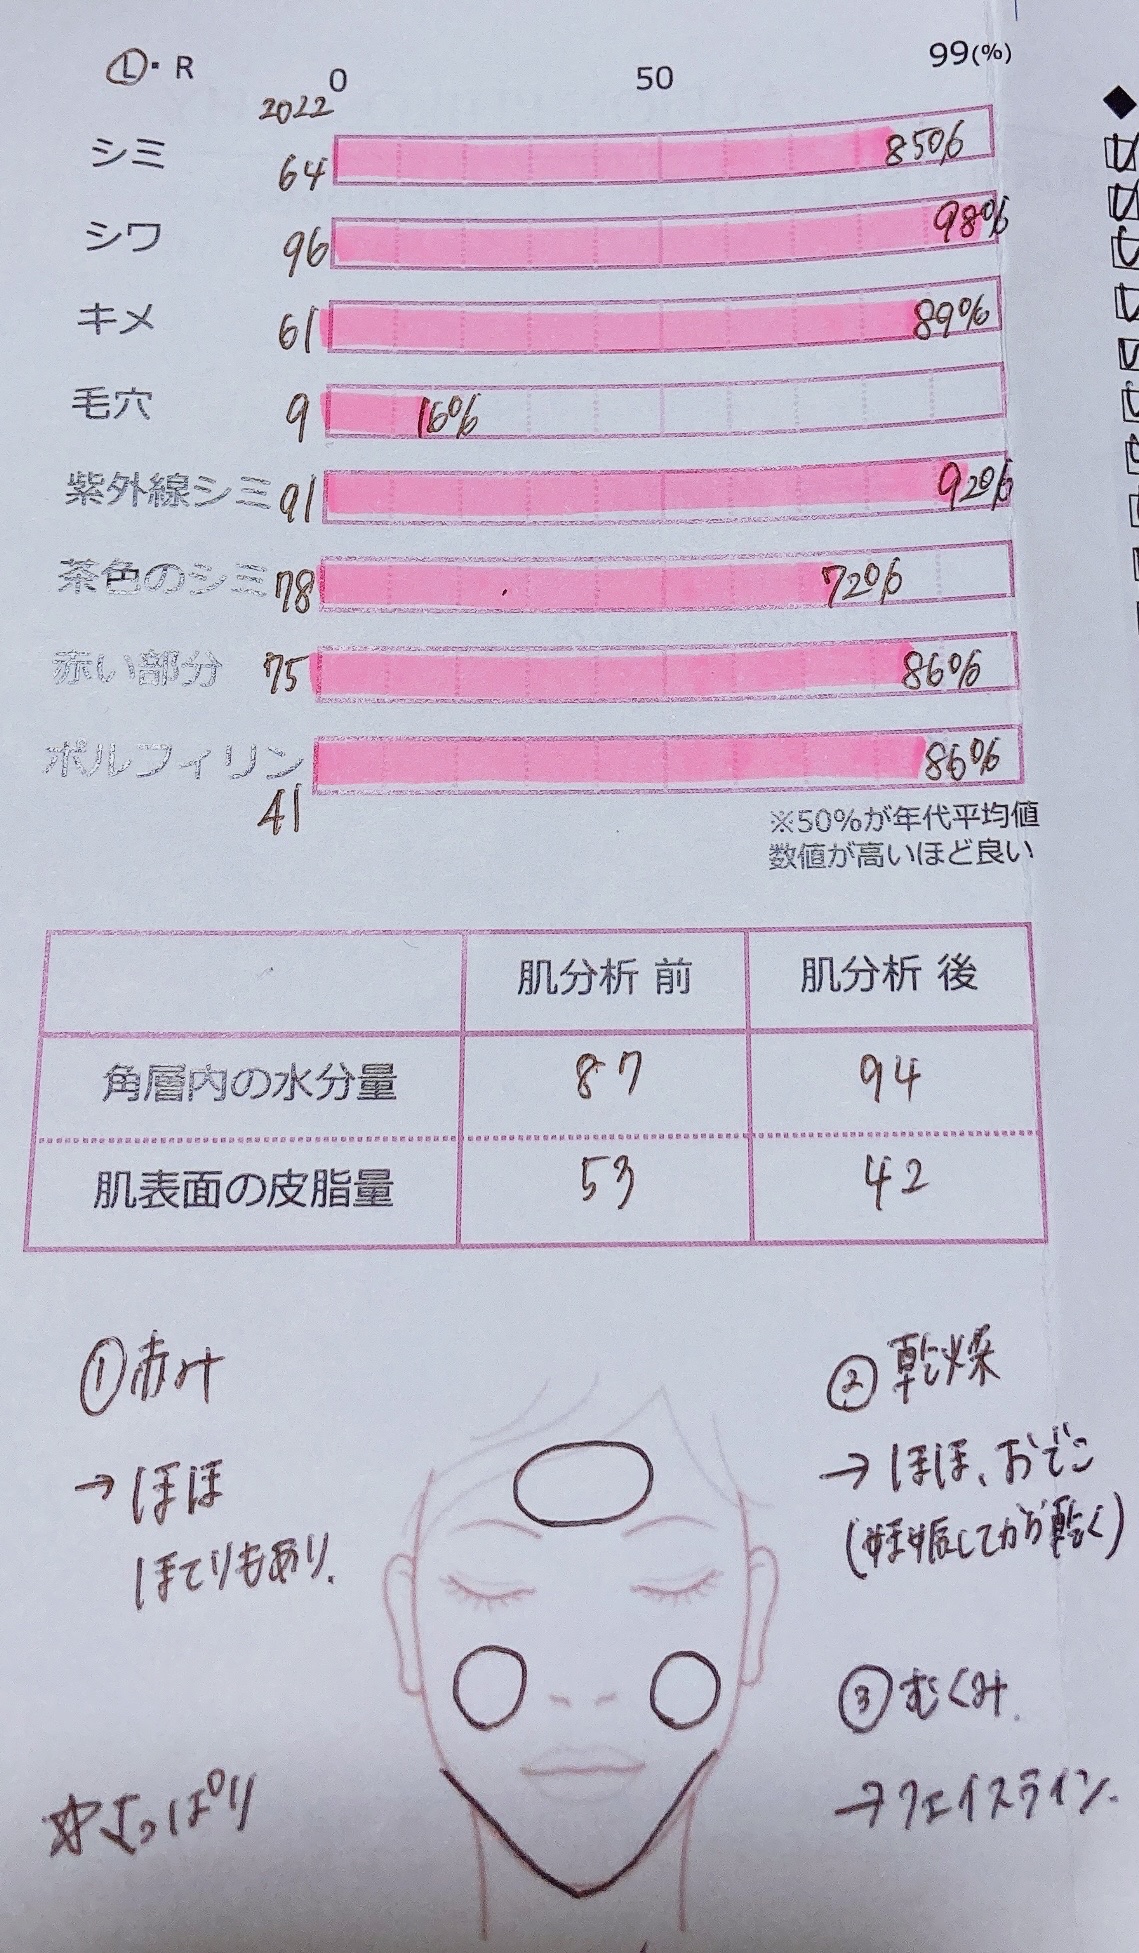 Ⓛ・R 0 50 99(%)
2022
シミ 64 85%
シワ 96 98%
キメ 61 89%
毛穴 9 16%
紫外線シミ 91 92%
茶色のシミ 78 72%
赤い部分 75 86%
ポルフィリン 86%
41
※50%が年代平均値
数値が高いほど良い
肌分析 前 肌分析 後
角層内の水分量 87 94
肌表面の皮脂量 53 42
①赤み
→ほほ
ほてりもあり.
②乾燥
→ほほ、おでこ
(妊娠してから乾く)
③むくみ.
→フェイスライン.
☆さっぱり